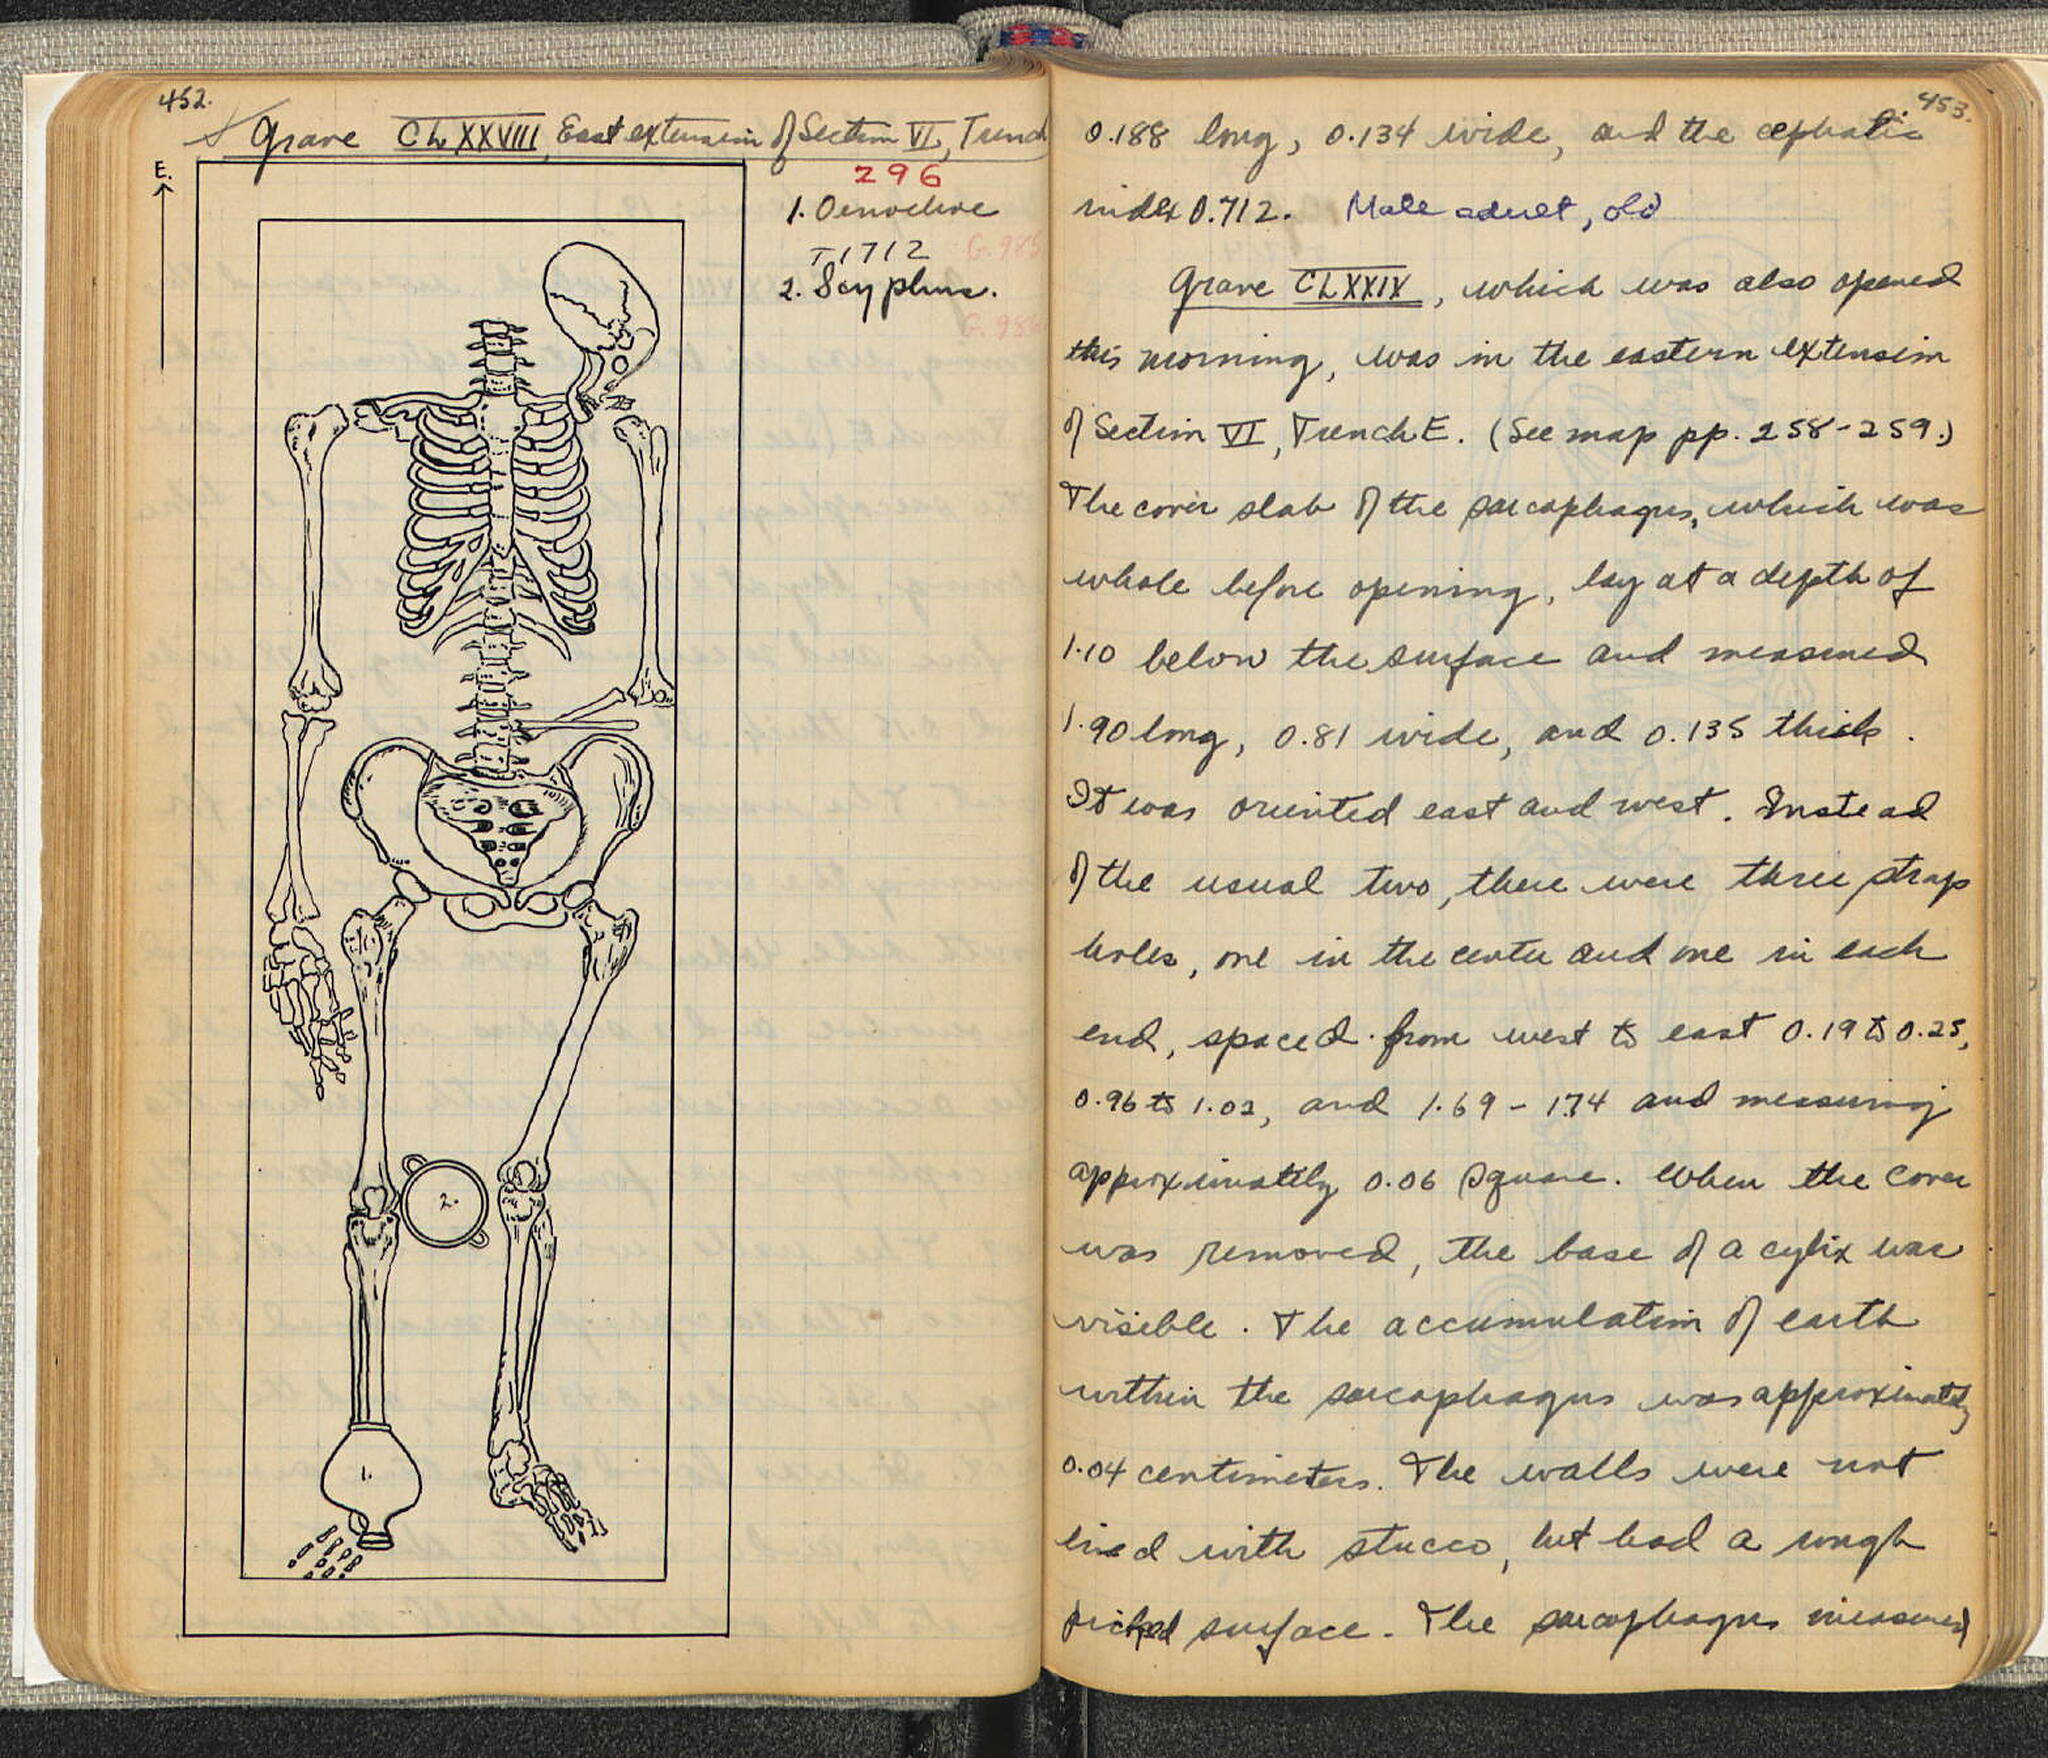 452.
Grave CLXXVIII, East extension of Section VI, Trench
E.
296
1. Oenochoe
T1712
G. 985
2. Scyphus.
G. 986
2.
1.
453.
0.188 long, 0.134 wide, and the cephalic
index 0.712. Male adult, old
Grave CLXXIX, which was also opened
this morning, was in the eastern extension
of Section VI, Trench E. (See map pp. 258-259.)
The cover slab of the sarcophagus, which was
whole before opening, lay at a depth of
1.10 below the surface and measured
1.90 long, 0.81 wide, and 0.135 thick.
It was oriented east and west. Instead
of the usual two, there were three strap
holes, one in the center and one in each
end, spaced from west to east 0.19 to 0.25,
0.96 to 1.02, and 1.69 - 1.74 and measuring
approximately 0.06 square. When the cover
was removed, the base of a cylix was
visible. The accumulation of earth
within the sarcophagus was approximately
0.04 centimeters. The walls were not
lined with stucco, but had a rough
picked surface. The sarcophagus measured